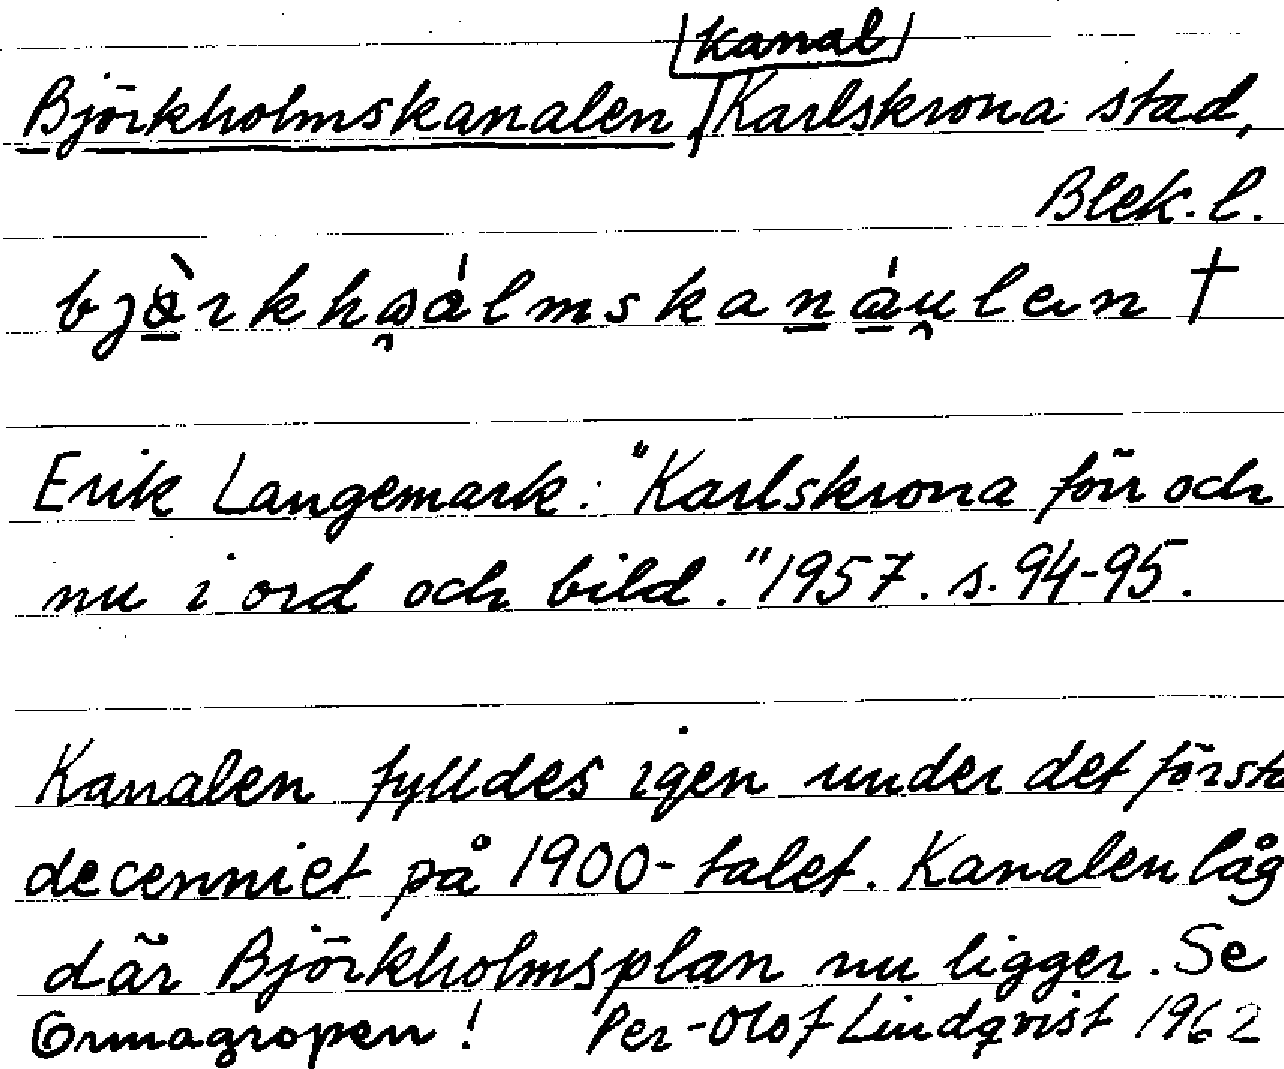 kanal
Björkholmskanalen, Karlskrona stad,
Blek. l.
†
Erik Langemark: "Karlskrona förr och
nu i ord och bild." 1957. s. 94-95.
Kanalen fylldes igen under det första
decenniet på 1900-talet. Kanalen låg
där Björkholmsplan nu ligger. Se
Ormagropen! Per-Olof Lindqvist 1962